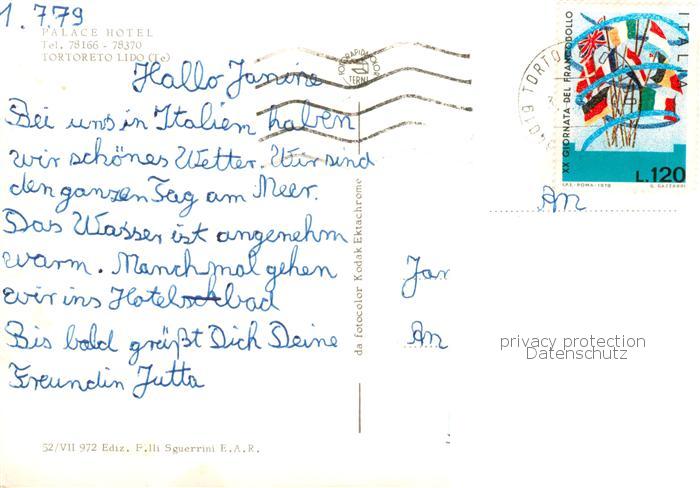 1.7.79
PALACE HOTEL
Tel. 78166 - 78370
TORTORETO LIDO (Te)
Hallo Janine
Bei uns in Italien haben
wir schönes Wetter. Wir sind
den ganzen Tag am Meer.
Das Wasser ist angenehm
warm. Manchmal gehen
wir ins Hotelbad
Bis bald grüßt Dich Deine
Freundin Jutta
52/VII 972 Ediz. F.lli Sguerrini E.A.R.
da fotocolor Kodak Ektachrome
TERNI
64019 TORTO
XX GIORNATA DEL FRANCOBOLLO
ITALIA
L.120
I.P.S. - ROMA - 1978
G. GAZZARRI
An
Jan
An
privacy protection
Datenschutz